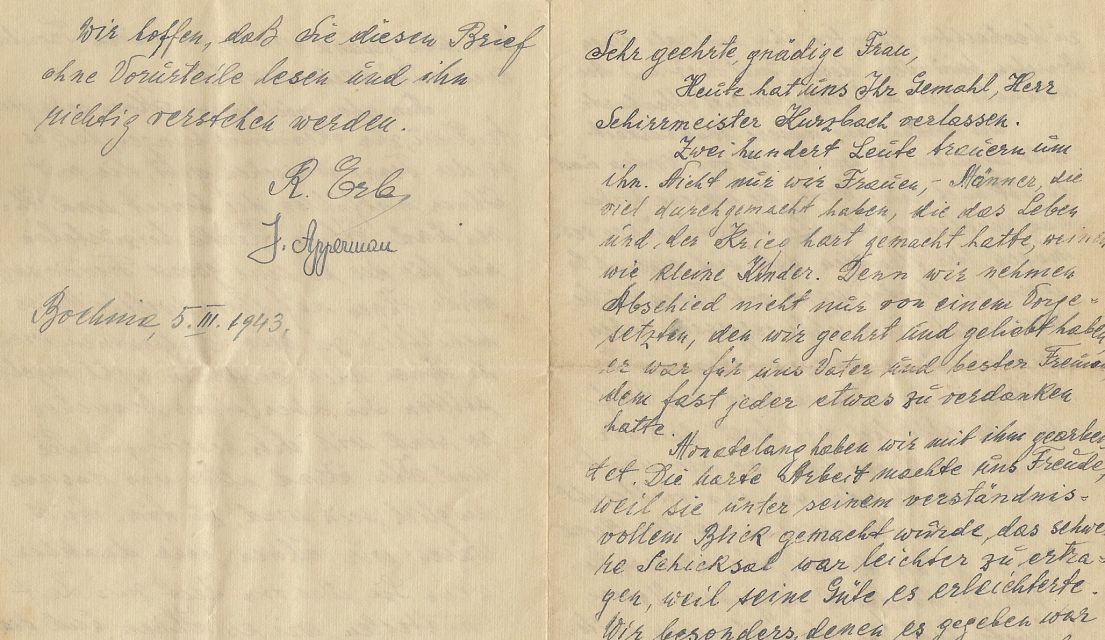 Wir hoffen, daß Sie diesen Brief
ohne Vorurteile lesen und ihn
richtig verstehen werden.
R. Erb
J. Apperman
Bochnia, 5.III.1943.
Sehr geehrte, gnädige Frau,
Heute hat uns Ihr Gemahl, Herr
Schirrmeister Kurzbach verlassen.
Zwei hundert Leute trauern um
ihn. Nicht nur wir Frauen, - Männer, die
viel durchgemacht haben, die das Leben
und der Krieg hart gemacht hatte, weinen
wie kleine Kinder. Denn wir nehmen
Abschied nicht nur von einem Vorge=
setzten, den wir geehrt und geliebt haben,
er war für uns Vater und bester Freund,
dem fast jeder etwas zu verdanken
hatte.
Monatelang haben wir mit ihm gearbei
tet. Die harte Arbeit machte uns Freude,
weil sie unter seinem verständnis=
vollem Blick gemacht würde, das schwe
re Schicksal war leichter zu ertra=
gen, weil seine Güte es erleichterte.
Wir besonders, denen es gegeben war